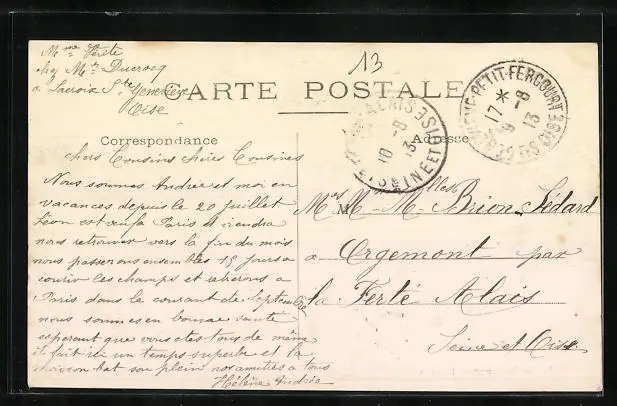 Mme Vérité
chez Mr Ducrocq
a Lacroix Ste Geneviève
Oise
13
CARTE POSTALE
Correspondance
Adresse
chers Cousins chères Cousines
Nous sommes Andrée et moi en
vacances depuis le 20 juillet
Léon est Paris et viendra
nous retrouver vers la fin du mois
nous passerons ensembles 15 jours a
courir les champs et reterons a
Paris dans le courant de Septembre
nous sommes en bonne santé
esperant que vous etes tous de même
il fait ici un temps superbe et la
bat son plein nos amitiés a tous
Hélène Andrée
M
Brion Lédard
a Orgemont par
la Ferté Alais
Seine et Oise
PETIT-FERCOURT
OISE
17 *
9 -8
13
ALAIS
SEINE ET OISE
10 -8
13